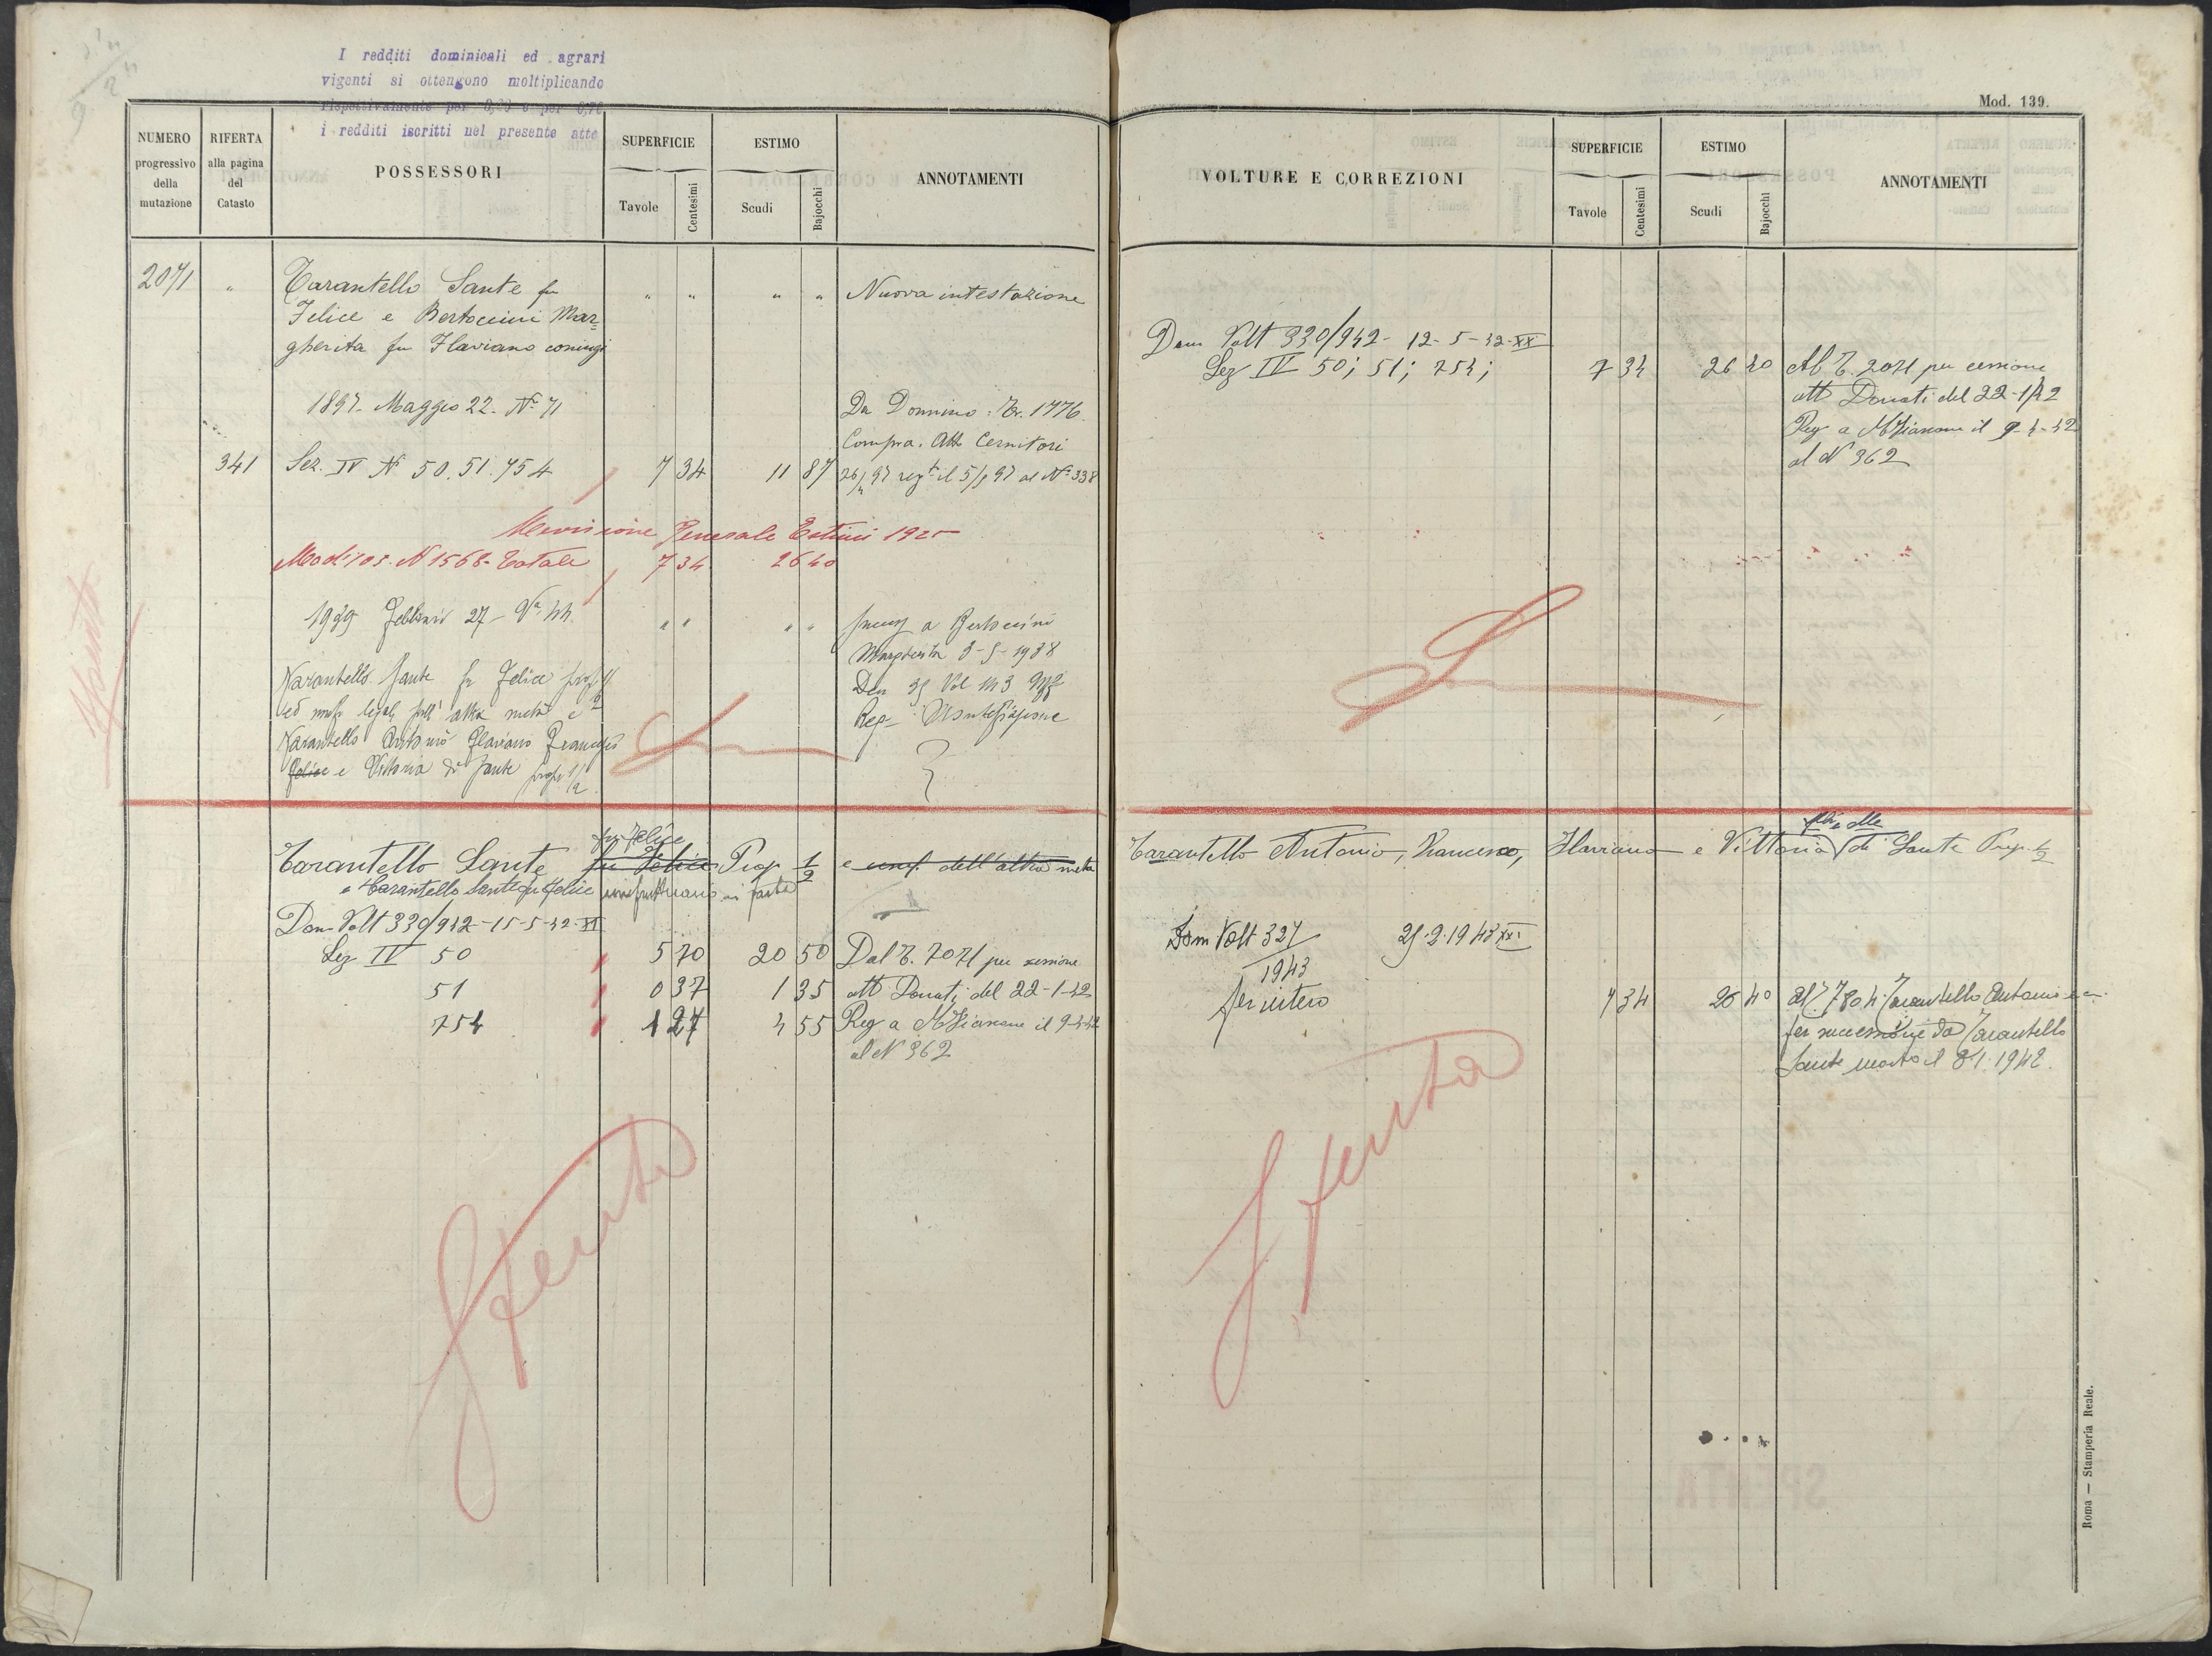 I redditi dominicali ed agrari
vigenti si ottengono moltiplicando
rispettivamente per
i redditi iscritti nel presente atto
Mod. 139.
NUMERO progressivo della mutazione
RIFERTA alla pagina del Catasto
POSSESSORI
SUPERFICIE
Tavole
Centesimi
ESTIMO
Scudi
Bajocchi
ANNOTAMENTI
2071 " Tarantello Sante fu " " " " Nuova intestazione
Felice e Bertoccini Mar=
gherita fu Flaviano coniugi
1897 - Maggio 22 - Nº 71 Da Donnino: Tr. 1776.
Compra. Atto Cernitori
341 Sez. IV Nº 50. 51. 754 7 34 11 87 26/4 97 regto il 5/5 97 al Nº 338
Revisione Generale Estimi 1925
Mod. 105. N 1568 - Totale 7 34 26 40
1939 Febbraio 27 - Nº 44 " " " " a Bertoccini
Margherita 3-5-1938
Den 35 Vol 143
Reg= Montefiascone
Tarantello Sante fu Felice prop 1/2
ed legale sull' altra metà e
Tarantello Antonio Flaviano
Felice e Vittoria di Sante prop 1/2
fu Felice
Tarantello Sante fu Felice Prop 1/2 e usuf. dell'altra metà
e Tarantello Sante fu Felice usufruttuario in parte
Dom Volt 330/942 - 15-5-42-XX
Sez IV 50 5 70 20 50 Dal T. 2071 per cessione
51 0 37 1 35 att Donati del 22-1-42
754 1 27 4 55 Reg a MFiascone il 9-4-42
al N 362
Spenta
VOLTURE E CORREZIONI
SUPERFICIE
Tavole
Centesimi
ESTIMO
Scudi
Bajocchi
ANNOTAMENTI
Dom Volt 330/942 - 12-5-42-XX
Sez IV 50; 51; 754; 7 34 26 40 Al T. 2071 per cessione
att Donati del 22-1-42
Reg a MFiascone il 9-4-42
al N 362
Tarantello Antonio, Francesco, Flaviano e Vittoria di Sante Prop. 1/2
Dom Volt 327/1943 25.2.1943 XXI
per intero 7 34 26 40 Al T. 7804 Tarantello Antonio ecc.
per successione da Tarantello
Sante morto il 8.1.1942.
Spenta
Roma — Stamperia Reale.